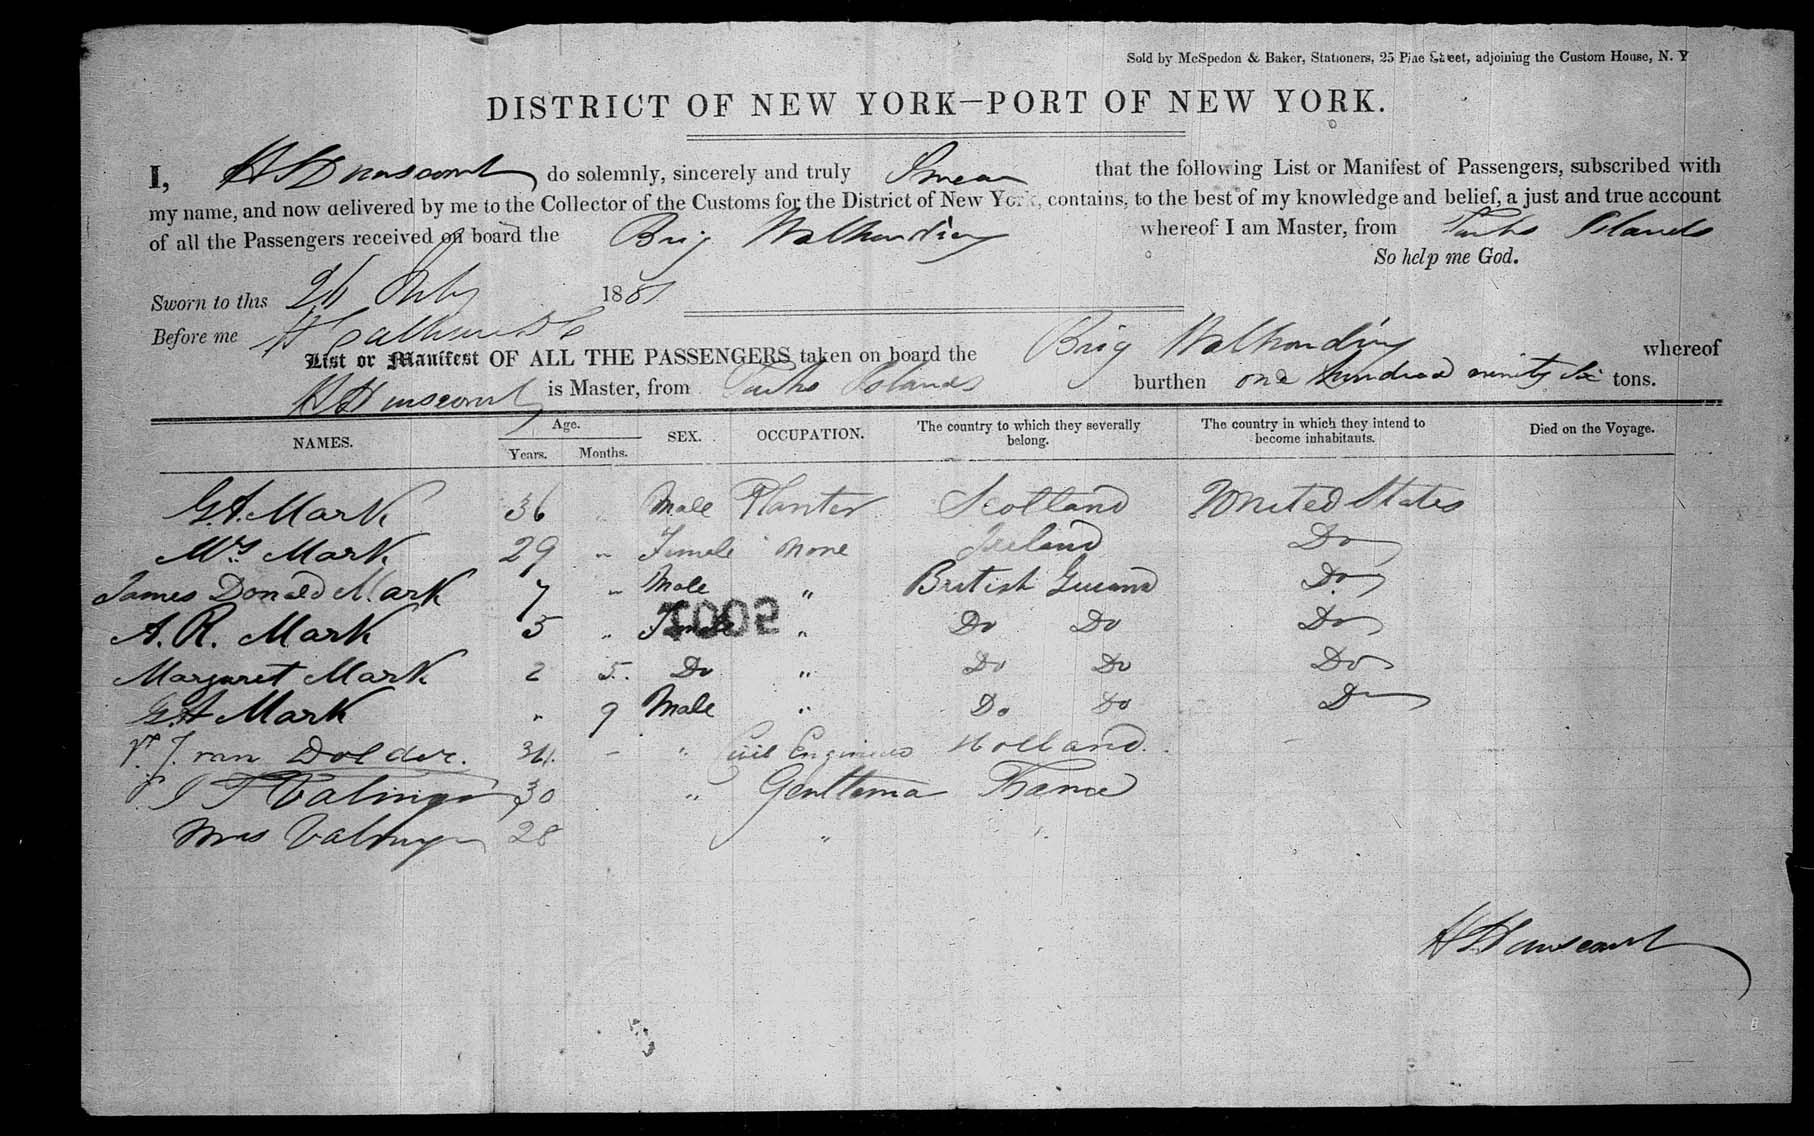 Sold by McSpedon & Baker, Stationers, 25 Pine Street, adjoining the Custom House, N. Y
DISTRICT OF NEW YORK—PORT OF NEW YORK.
I, do solemnly, sincerely and truly Swear that the following List or Manifest of Passengers, subscribed with
my name, and now delivered by me to the Collector of the Customs for the District of New York, contains, to the best of my knowledge and belief, a just and true account
of all the Passengers received on board the Brig Walhonding whereof I am Master, from Turks Islands
So help me God.
Sworn to this 26 185
Before me
List or Manifest OF ALL THE PASSENGERS taken on board the Brig Walhonding whereof
is Master, from Turks Islands burthen one hundred ninety six tons.
NAMES. Age. Years. Months. SEX. OCCUPATION. The country to which they severally belong. The country in which they intend to become inhabitants. Died on the Voyage.
G.A. Mark 36 " Male Planter Scotland United States
Mrs Mark 29 " Female None Ireland Do
James Donald Mark 7 " Male " British Guiana Do
A. R. Mark 5 " Female " Do Do Do
1005
Margaret Mark 2 5 Do " Do Do Do
G.A Mark " 9 Male " Do Do D
V. J. van Dolder. 34 – " Civil Engineer Holland –
30 " Gentleman France
Mrs 28 " "